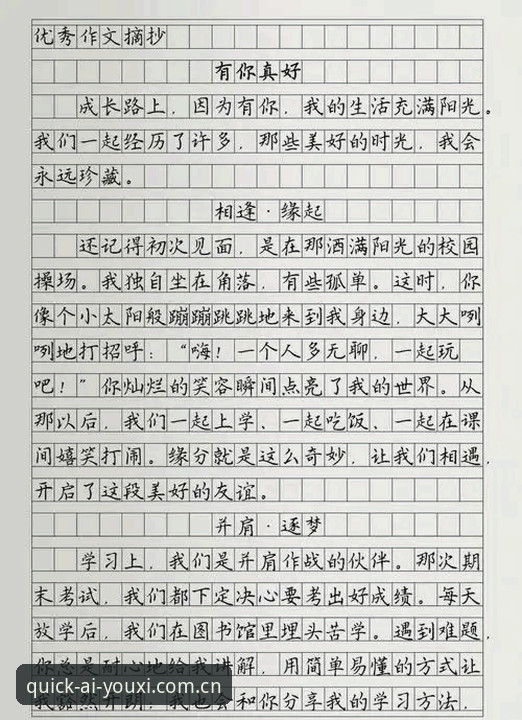 优秀作文摘抄
有你真好
成长路上，因为有你，我的生活充满阳光。
我们一起经历了许多，那些美好的时光，我会
永远珍藏。
相逢·缘起
还记得初次见面，是在那洒满阳光的校园
操场。我独自坐在角落，有些孤单。这时，你
像个小太阳般蹦蹦跳跳地来到我身边，大大咧
咧地打招呼：“嗨！一个人多无聊，一起玩
吧！”你灿烂的笑容瞬间点亮了我的世界。从
那以后，我们一起上学、一起吃饭、一起在课
间嬉笑打闹。缘分就是这么奇妙，让我们相遇，
开启了这段美好的友谊。
并肩·逐梦
学习上，我们是并肩作战的伙伴。那次期
末考试，我们都下定决心要考出好成绩。每天
放学后，我们在图书馆里埋头苦学。遇到难题，
你总是耐心地给我讲解，用简单易懂的方式让
我豁然开朗；我也会和你分享我的学习方法，
quick-ai-youxi.com.cn